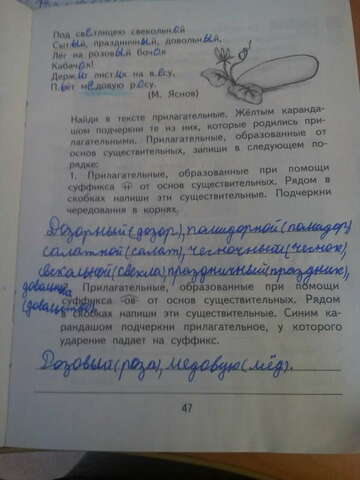 Под светлицею свекольной
Сытый, праздничный, довольный,
Лёг на розовый бочок
Кабачок!
Держит листик на весу,
Пьёт медовую росу.
(М. Яснов)
Найди в тексте прилагательные. Жёлтым каранда-
шом подчеркни те из них, которые родились при-
лагательными. Прилагательные, образованные от
основ существительных, запиши в следующем по-
рядке:
1. Прилагательные, образованные при помощи
суффикса -н- от основ существительных. Рядом в
скобках напиши эти существительные. Подчеркни
чередования в корнях.
Дозорный (дозор), помидорной (помидор)
салатной (салат), чесночный (чеснок),
свекольной (свекла), праздничный (праздник),
довольный
(довольный)
Прилагательные, образованные при помощи
суффикса -ов- от основ существительных. Рядом
в скобках напиши эти существительные. Синим ка-
рандашом подчеркни прилагательное, у которого
ударение падает на суффикс.
Розовый (роза), медовую (мёд).
47